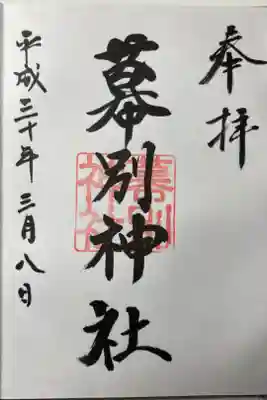 奉拝
幕別神社
平成三十年三月八日
幕別
神社